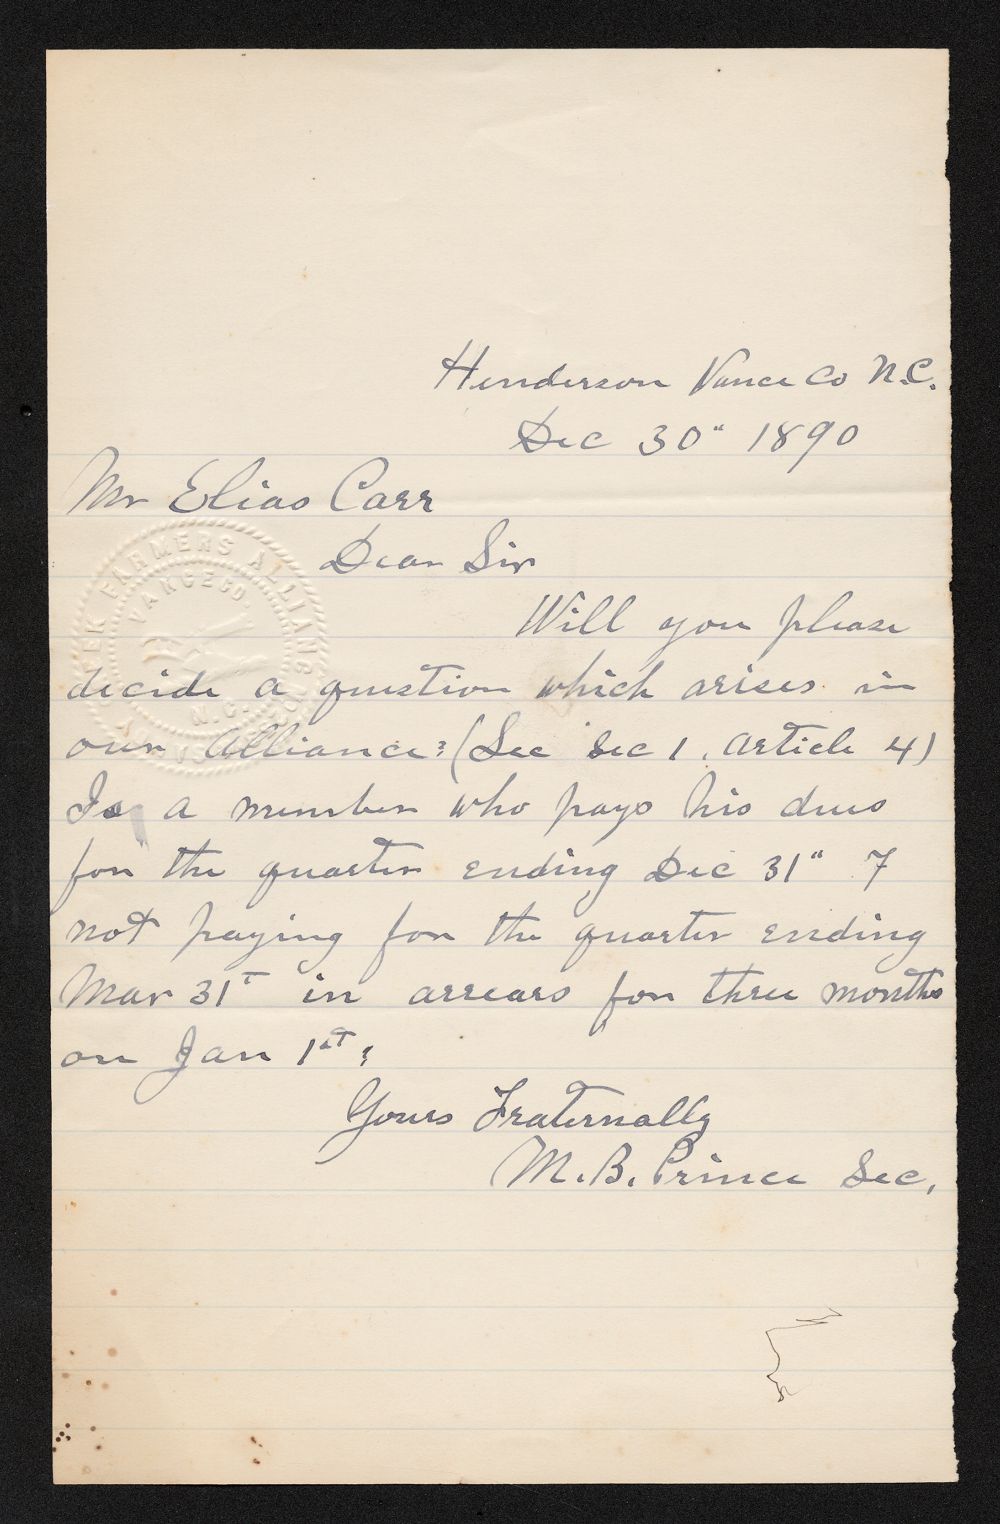 Henderson Vance Co N.C.
Dec 30" 1890
Mr Elias Carr
Dear Sir
Will you please
decide a question which arises in
our Alliance? (See Sec 1. Article 4)
Is a member who pays his dues
for the quarter ending Dec 31" &
not paying for the quarter ending
Mar 31st in arrears for three months
on Jan 1st?
Yours Fraternally
M. B. Prince Sec.
FARMERS ALLIANCE
VANCE CO.
N.C.